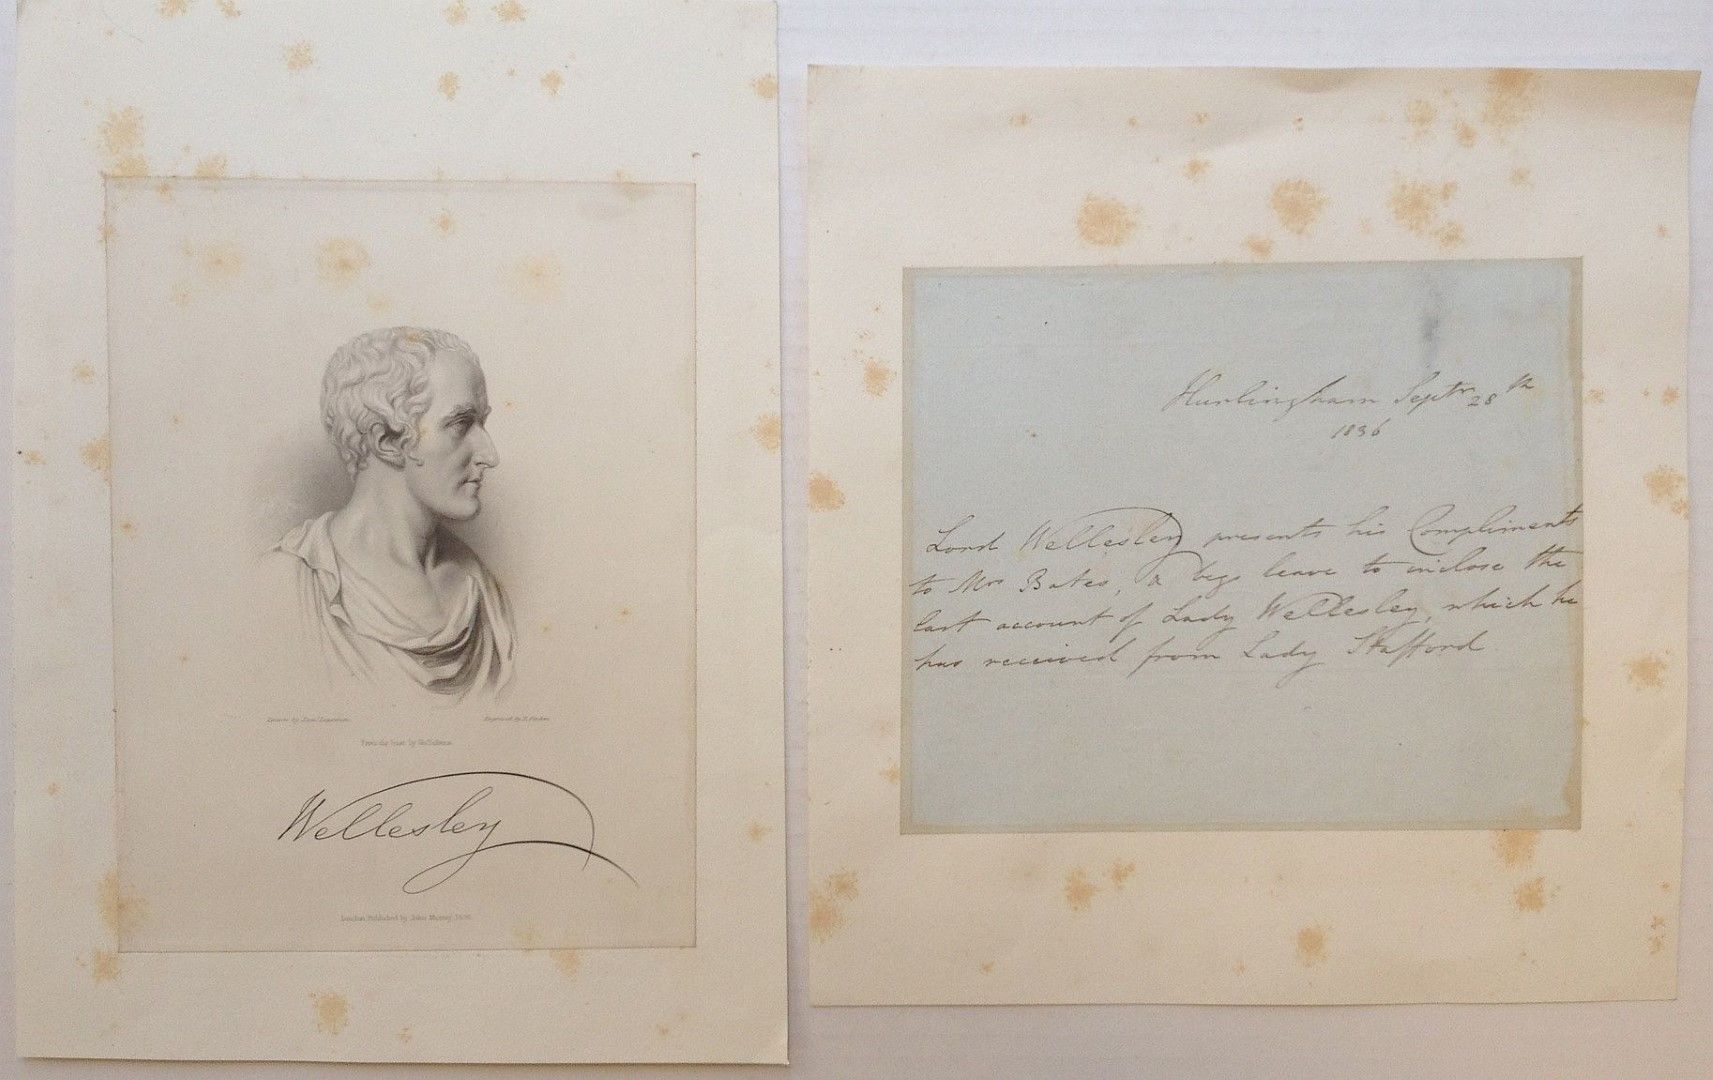 Drawn by
Engraved by
From the bust by Nollekens
Wellesley
London Published by John Murray, 1836
Hurlingham Septr 28th
1836
Lord Wellesley presents his Compliments
to Mrs Bates, & begs leave to inclose the
last account of Lady Wellesley, which he
has received from Lady Stafford